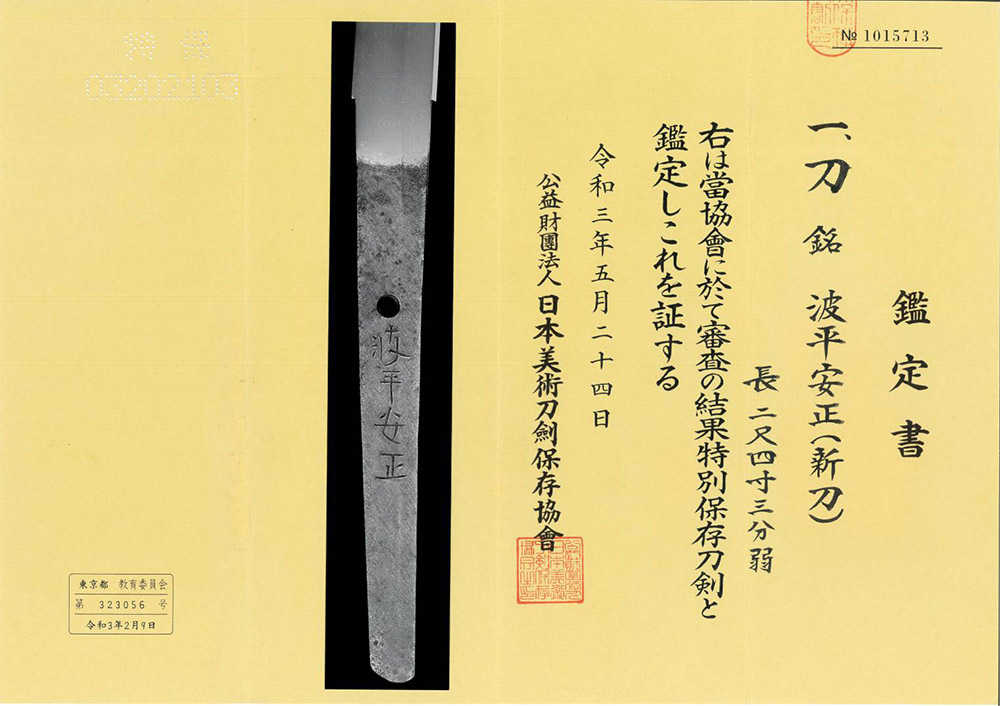 № 1015713
鑑定書
一、刀 銘 波平安正(新刀)
長 二尺四寸三分弱
右は當協會に於て審査の結果特別保存刀剣と
鑑定しこれを証する
令和三年五月二十四日
公益財團法人 日本美術刀劍保存協會
波平安正
03202103
東京都 教育委員会
第 323056 号
令和3年2月9日